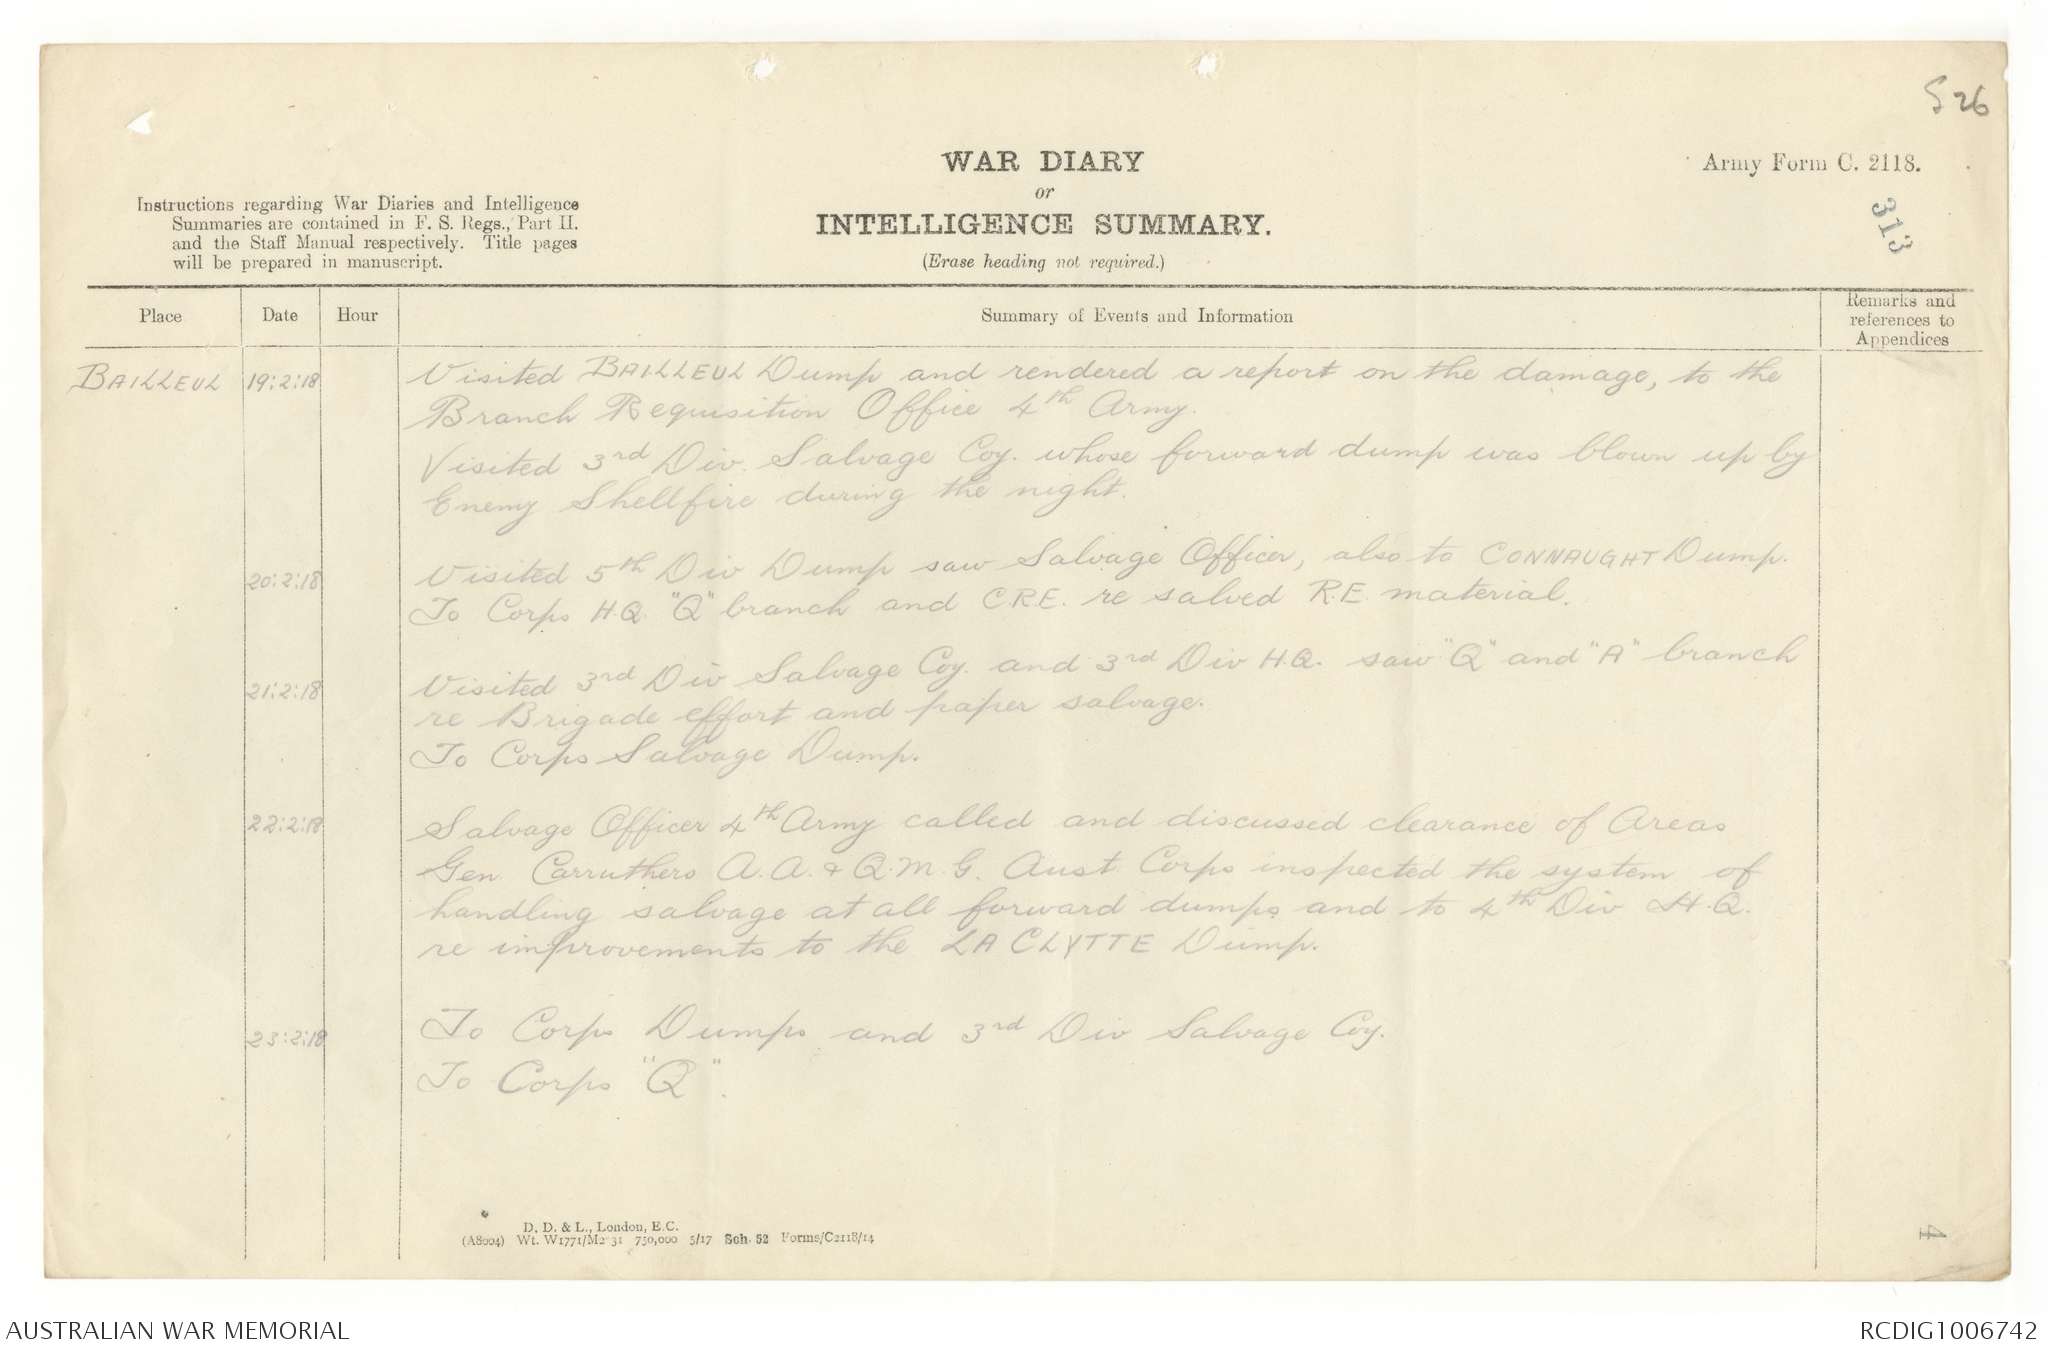 S 26
WAR DIARY
or
INTELLIGENCE SUMMARY.
(Erase heading not required.)
Army Form C. 2118.
313
Instructions regarding War Diaries and Intelligence
Summaries are contained in F. S. Regs., Part II.
and the Staff Manual respectively. Title pages
will be prepared in manuscript.
Place Date Hour Summary of Events and Information Remarks and references to Appendices
BAILLEUL 19:2:18 Visited BAILLEUL Dump and rendered a report on the damage, to the
Branch Requisition Office 4th Army.
Visited 3rd Div. Salvage Coy. whose forward dump was blown up by
Enemy Shellfire during the night.
20:2:18 Visited 5th Div Dump saw Salvage Officer, also to CONNAUGHT Dump.
To Corps H.Q. "Q" branch and C.R.E. re salved R.E. material.
21:2:18 Visited 3rd Div Salvage Coy. and 3rd Div H.Q. saw "Q" and "A" branch
re Brigade effort and paper salvage.
To Corps Salvage Dump.
22:2:18 Salvage Officer 4th Army called and discussed clearance of Areas
Gen. Carruthers A.A. & Q.M.G. Aust Corps inspected the system of
handling salvage at all forward dumps and to 4th Div H.Q.
re improvements to the LA CLYTTE Dump.
23:2:18 To Corps Dumps and 3rd Div Salvage Coy.
To Corps "Q".
D. D. & L., London, E.C.
(A8004) Wt. W1771/M2 31 750,000 5/17 Sch. 52 Forms/C2118/14
4
AUSTRALIAN WAR MEMORIAL
RCDIG1006742